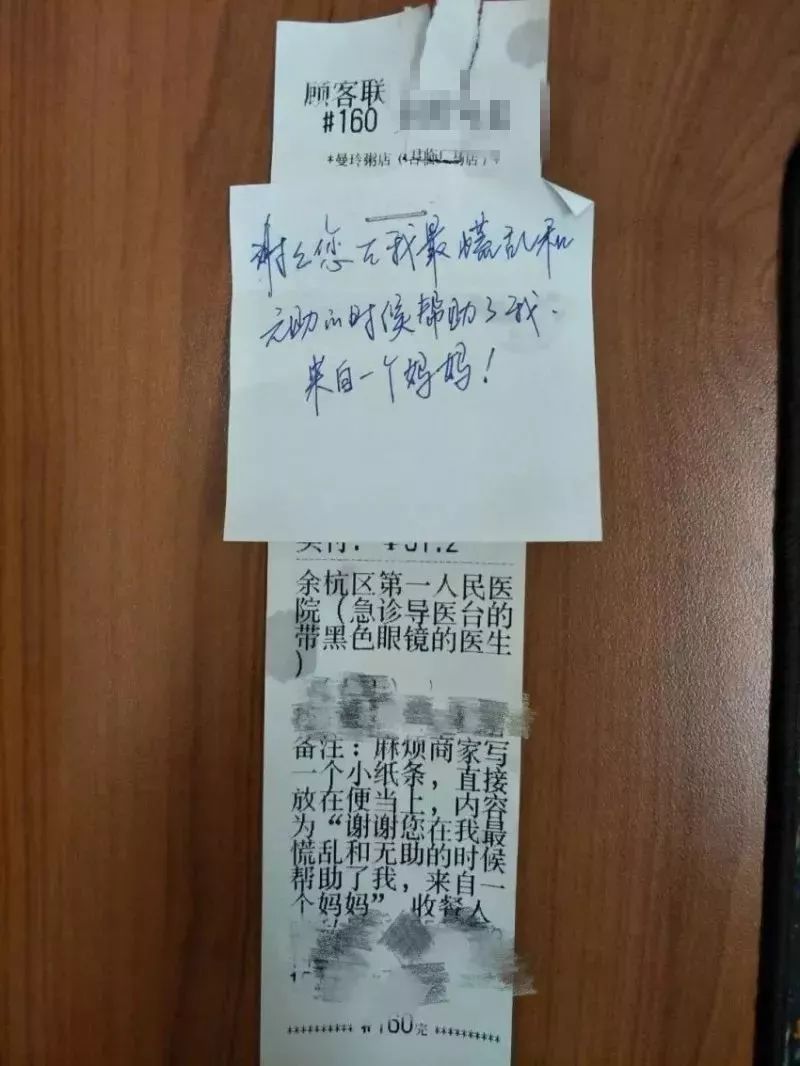 顾客联
#160
*曼玲粥店
谢谢您在我最慌乱和
无助的时候帮助了我.
来自一个妈妈!
余杭区第一人民医
院(急诊导医台的
带黑色眼镜的医生
)
备注:麻烦商家写
一个小纸条,直接
放在便当上,内容
为“谢谢您在我最
慌乱和无助的时候
帮助了我,来自一
个妈妈” 收餐人
********** #160完 **********